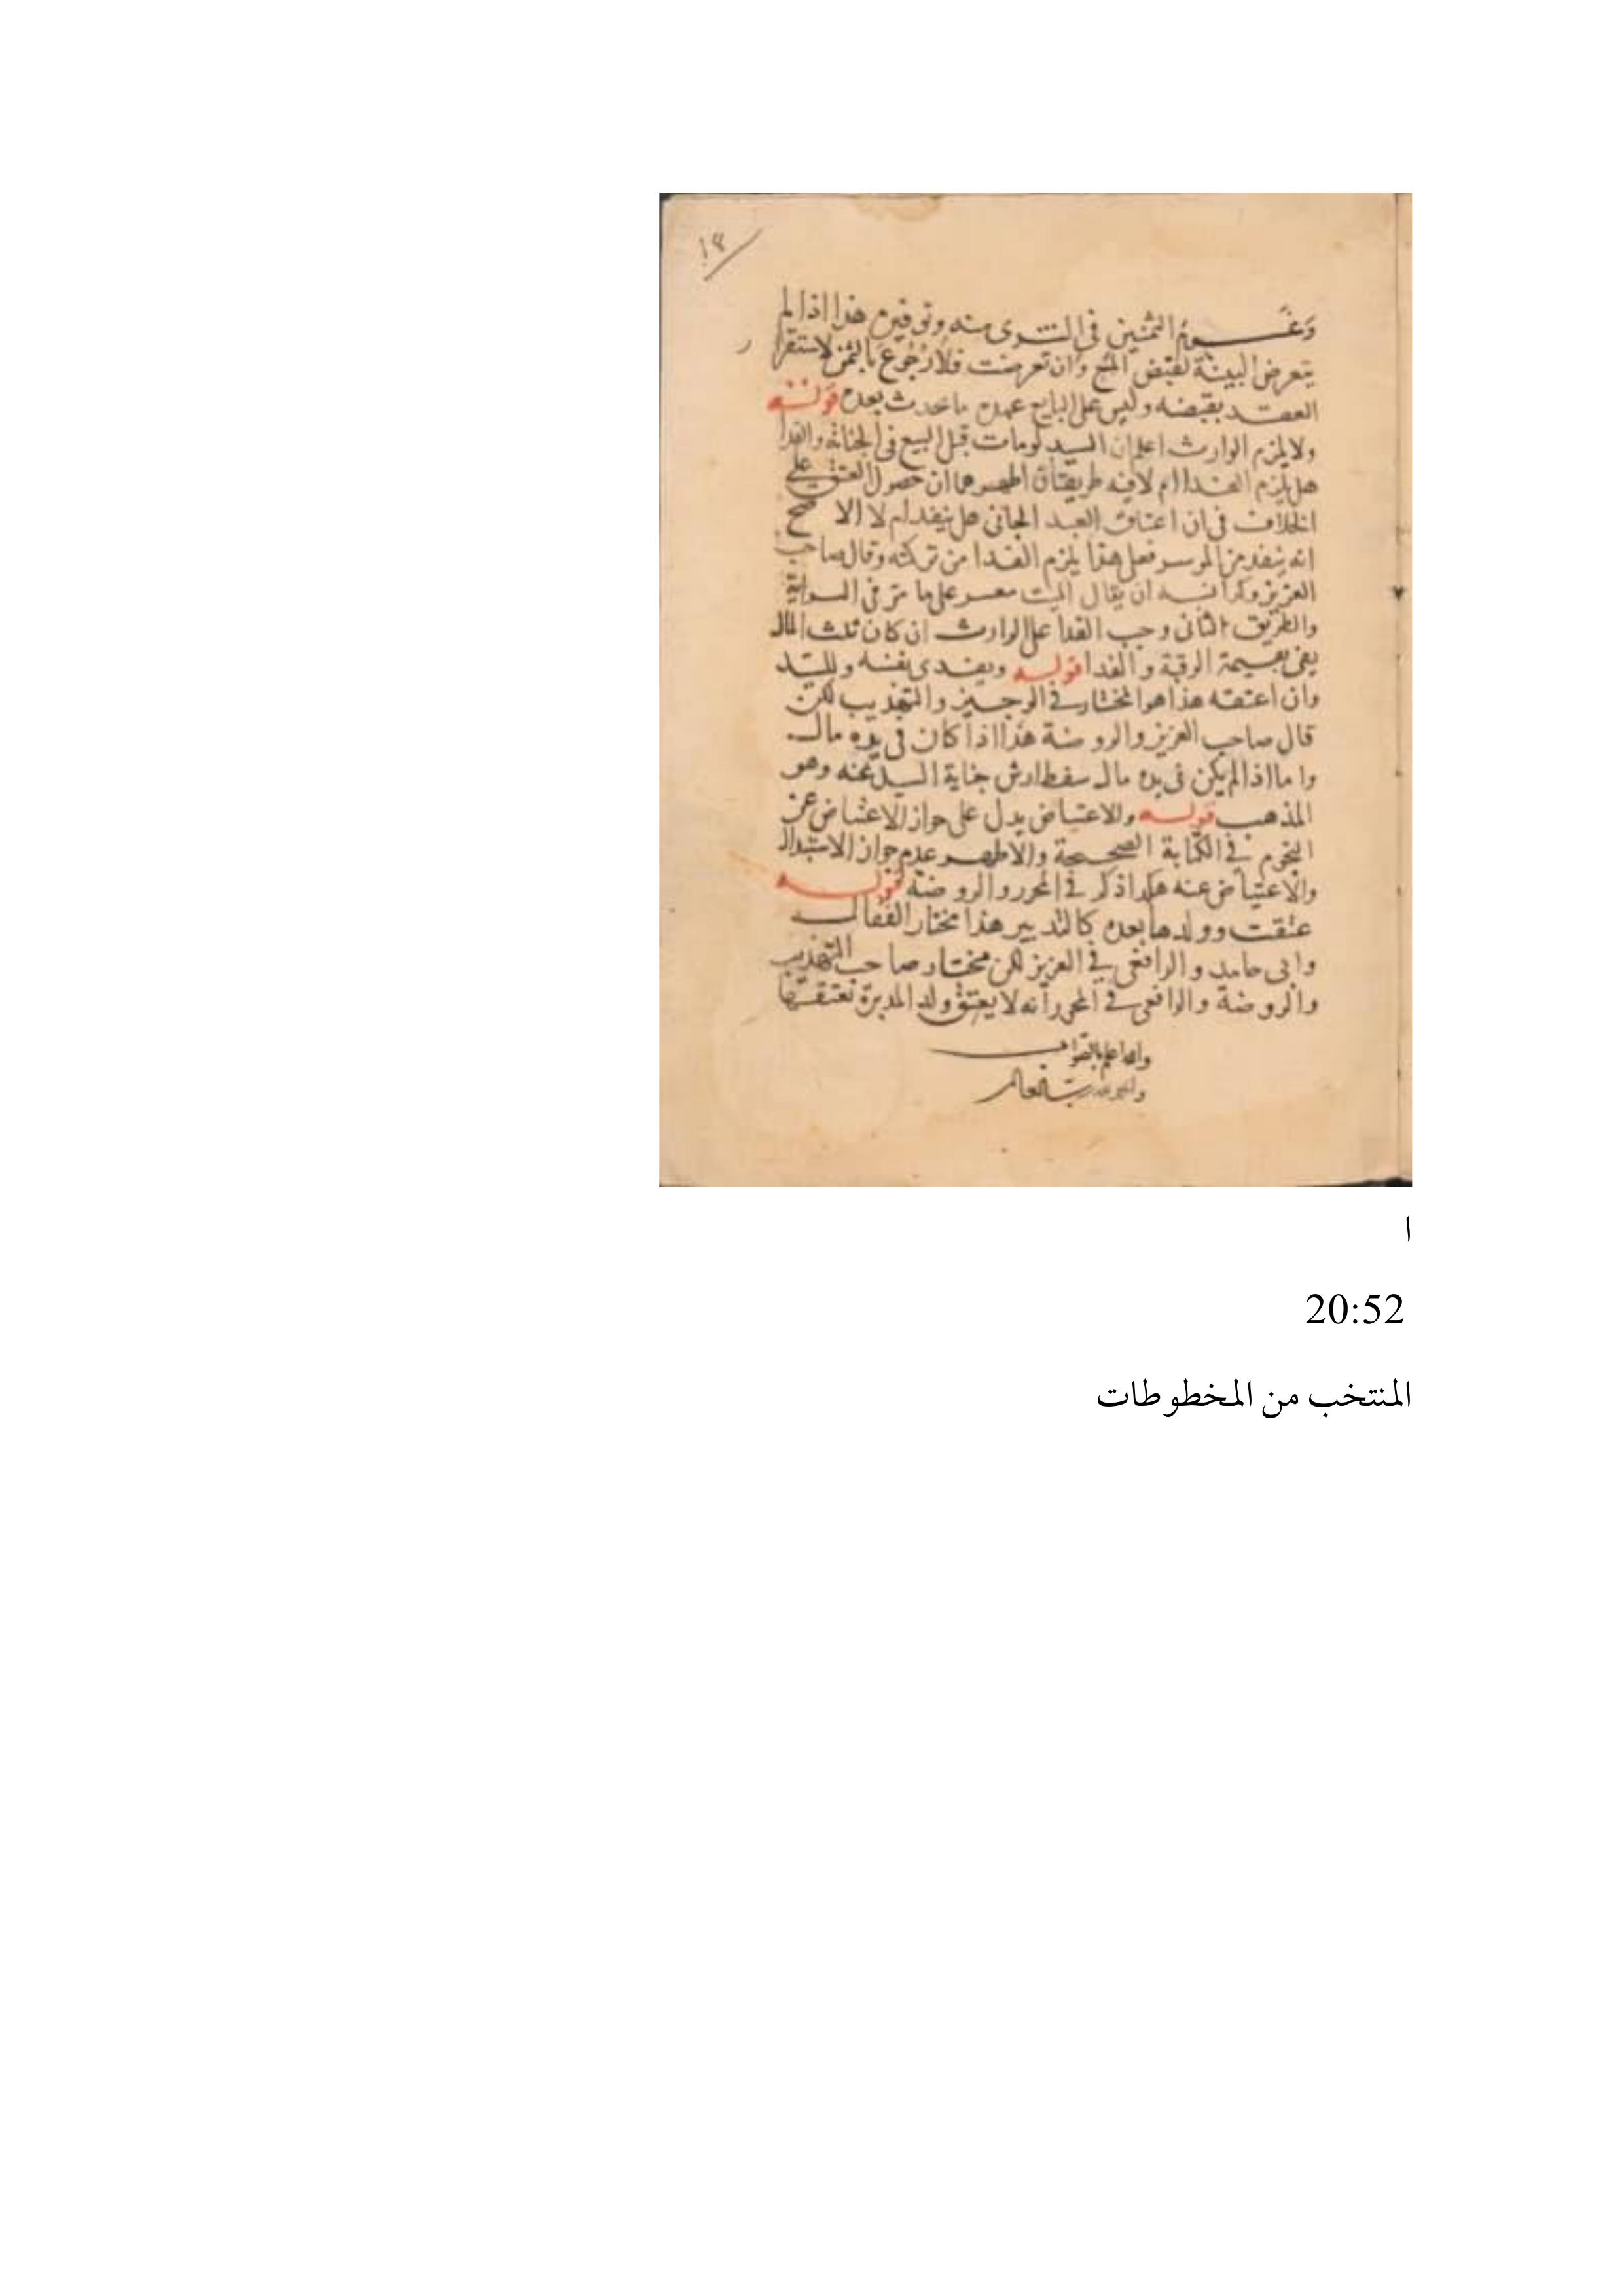 ١٢
وغرم الثمنين في المشترى منه وتوفيره هذا اذا لم
يتعرض البينة لقبض المبيع وان تعرضت فلا رجوع بالثمن لاستقرار
العقد بقبضه وليس على البايع عهدة ما يحدث بعده قوله
ولا يلزم الوارث اعلم ان السيد لو مات قبل البيع في الجناية والفدا
هل يلزم الفدا ام لا فيه طريقتان اظهرهما ان حصول العتق على
الخلاف في ان اعتاق العبد الجاني هل ينفد ام لا الا صح
انه ينفد من الموسر فعلى هذا يلزم الفدا من تركته وقال صاحب
العزيز وكان يقال الميت معسر على ما مر في السراية
والطريق الثاني وجب الفدا على الوارث ان كان ثلث المال
يفى بقيمة الرقبة والفدا قوله ويفدى نفسه وللسيد
وان اعتقه هذا هو المختار في الوجيز والتهذيب لكن
قال صاحب العزيز والروضة هذا اذا كان في يده مال
واما اذا لم يكن في يده مال سقط ارش جناية السيد عنه وهو
المذهب قوله والاعتياض يدل على جواز الاعتياض عن
النجوم في الكتابة الصحيحة والاظهر عدم جواز الاستبدال
والاعتياض عنه هكذا ذكر في المحرر والروضة قوله
عتقت وولدها بعده كالتدبير هذا مختار القفال
وابى حامد والرافعي في العزيز لكن مختار صاحب التهذيب
والروضة والرافعي في المحرر انه لا يعتق ولد المدبرة بعتقها
والله اعلم بالصواب
والحمد لله رب العالمين
ا
20:52
المنتخب من المخطوطات